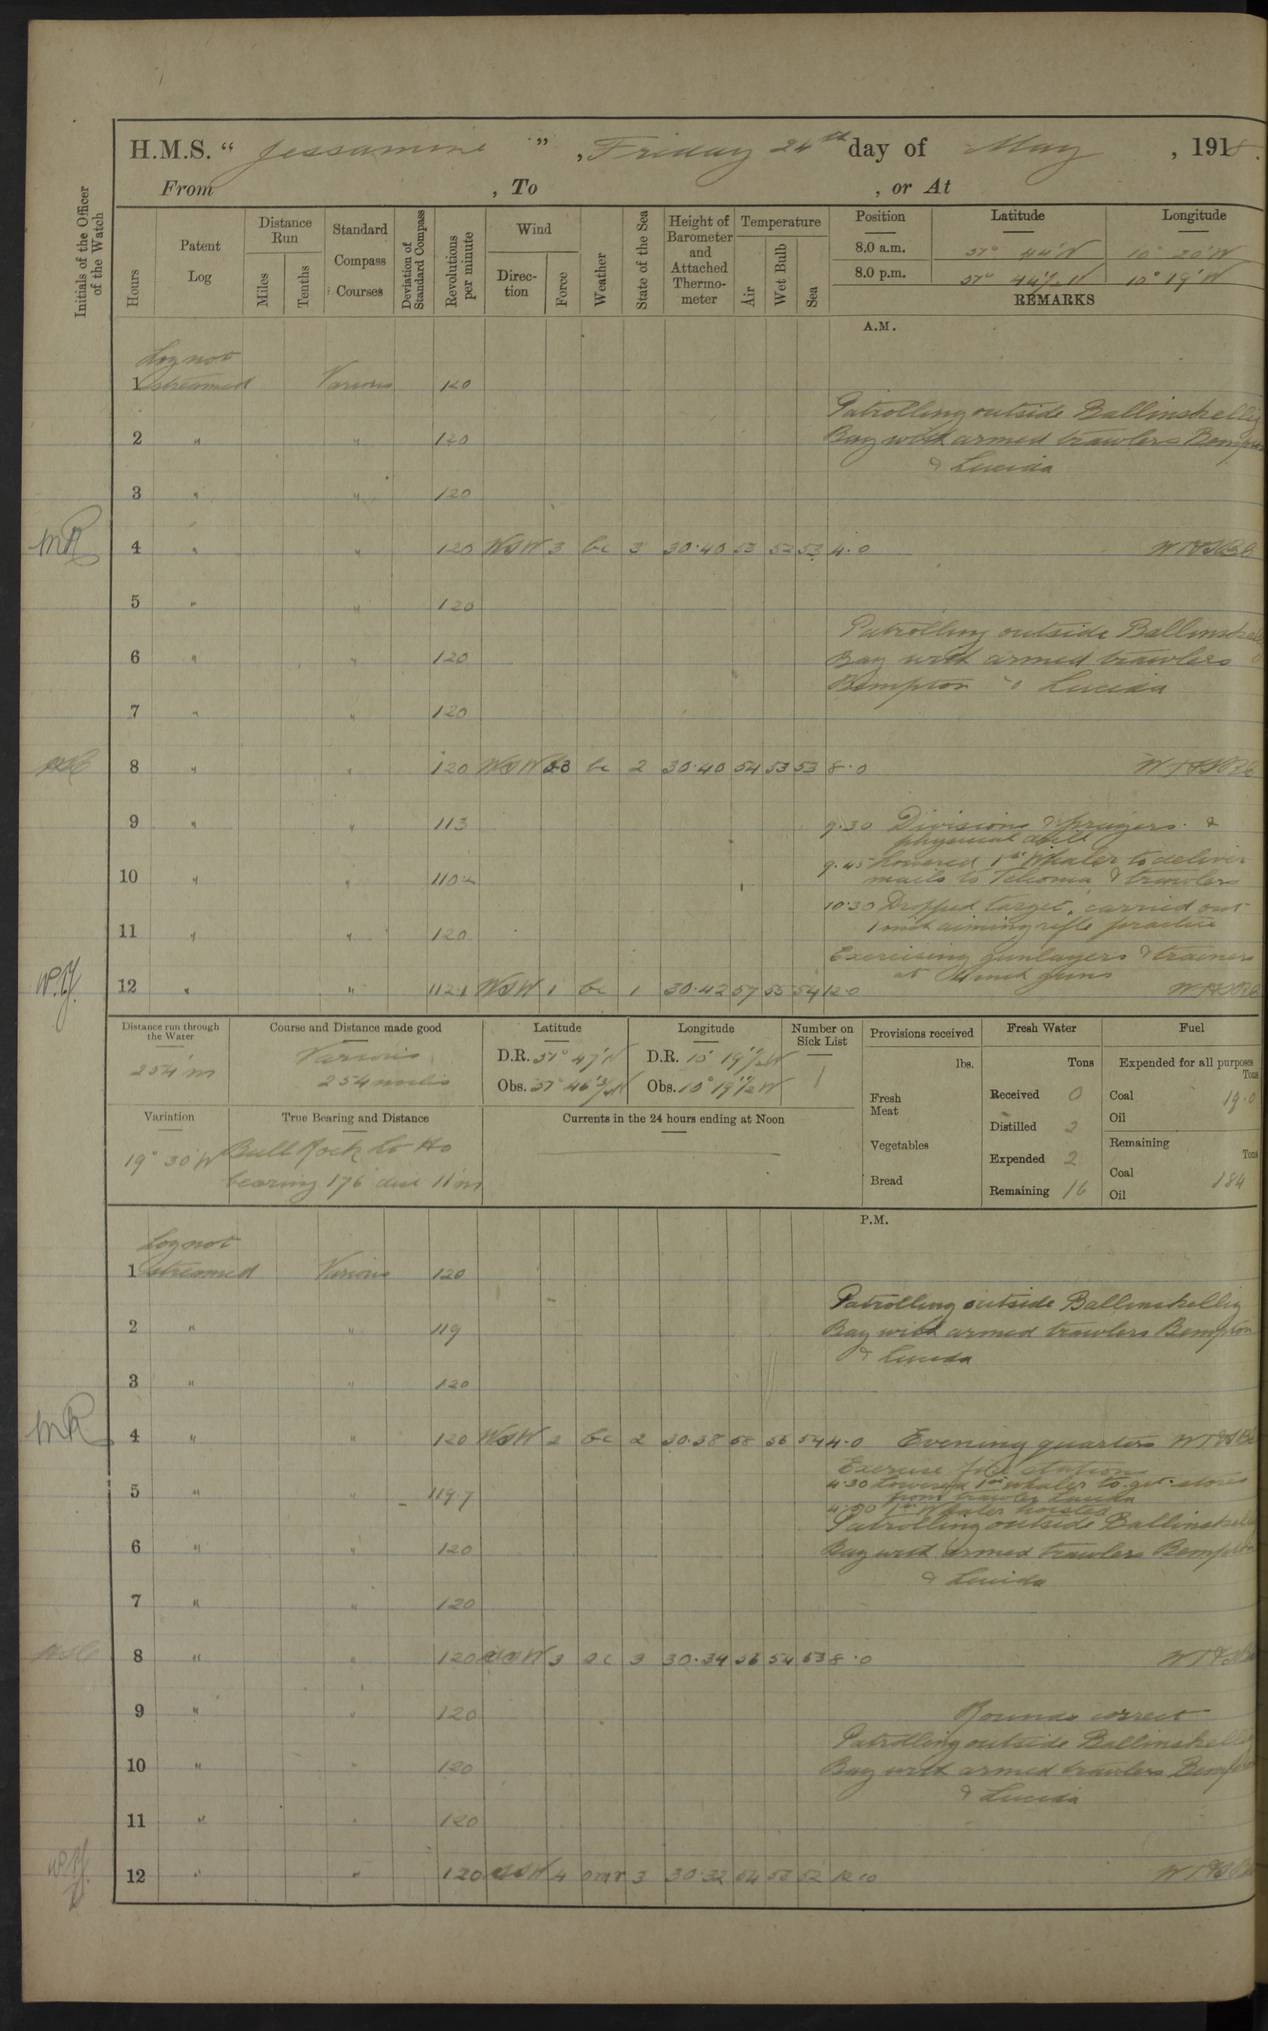 H.M.S. “ Jessamine ” , Friday 24th day of May , 1918.
From , To , or At
Initials of the Officer of the Watch
Hours
Patent Log
Distance Run
Miles
Tenths
Standard Compass Courses
Deviation of Standard Compass
Revolutions per minute
Wind
Direction
Force
Weather
State of the Sea
Height of Barometer and Attached Thermometer
Temperature
Air
Wet Bulb
Sea
Position Latitude Longitude
8.0 a.m. 51° 44'N 10° 20'W
8.0 p.m. 51° 44½'N 10° 19'W
REMARKS
A.M.
Log not
1 streamed Various 120
Patrolling outside Ballinskellig
2 " " 120 Bay with armed trawlers Bempton
& Lucida
3 " " 120
MR 4 " " 120 WSW 3 bc 3 30.40 53 52 53 4.0
5 " " 120
Patrolling outside Ballinskellig
6 " " 120 Bay with armed trawlers
Bempton & Lucida
7 " " 120
8 " " 120 WSW 3 bc 2 30.40 54 53 53 8.0
9 " " 113 9.30 Divisions & prayers. &
physical drill
9.45 Lowered 1st Whaler to deliver
10 " " 110.2 mails to Tehoma & trawlers
10.30 Dropped target, carried out
11 " " 120 1 inch aiming rifle practice
Exercising gunlayers & trainers
at 4 inch guns
12 " " 112.1 WSW 1 bc 1 30.42 57 55 54 12.0
Distance run through the Water
254 m
Course and Distance made good
Various
254 miles
Latitude
D.R. 51° 47'N
Obs. 51° 46¾'N
Longitude
D.R. 10° 19½'W
Obs. 10° 19½'W
Number on Sick List
1
Provisions received
lbs.
Fresh Meat
Vegetables
Bread
Fresh Water
Tons
Received 0
Distilled 2
Expended 2
Remaining 16
Fuel
Expended for all purposes
Tons
Coal 19.0
Oil
Remaining
Tons
Coal 184
Oil
Variation
19° 30'W
True Bearing and Distance
Bull Rock Lt Ho
bearing 176 dist 11 m
Currents in the 24 hours ending at Noon
P.M.
Log not
1 streamed Various 120
Patrolling outside Ballinskellig
2 " " 119 Bay with armed trawlers Bempton
& Lucida
3 " " 120
MR 4 " " 120 WSW 2 bc 2 30.38 58 56 54 4.0 Evening quarters
Exercise fire station
4.30 Lowered 1st whaler to get stores
5 " " 119.7 from trawler Lucida
4.50 1st Whaler hoisted
Patrolling outside Ballinskellig
6 " " 120 Bay with armed trawlers Bempton
& Lucida
7 " " 120
8 " " 120 3 3 30.34 56 54 53 8.0
9 " " 120 Rounds correct
Patrolling outside Ballinskellig
10 " " 120 Bay with armed trawlers Bempton
& Lucida
11 " " 120
12 " " 120 4 omr 3 30.32 54 53 52 12.0